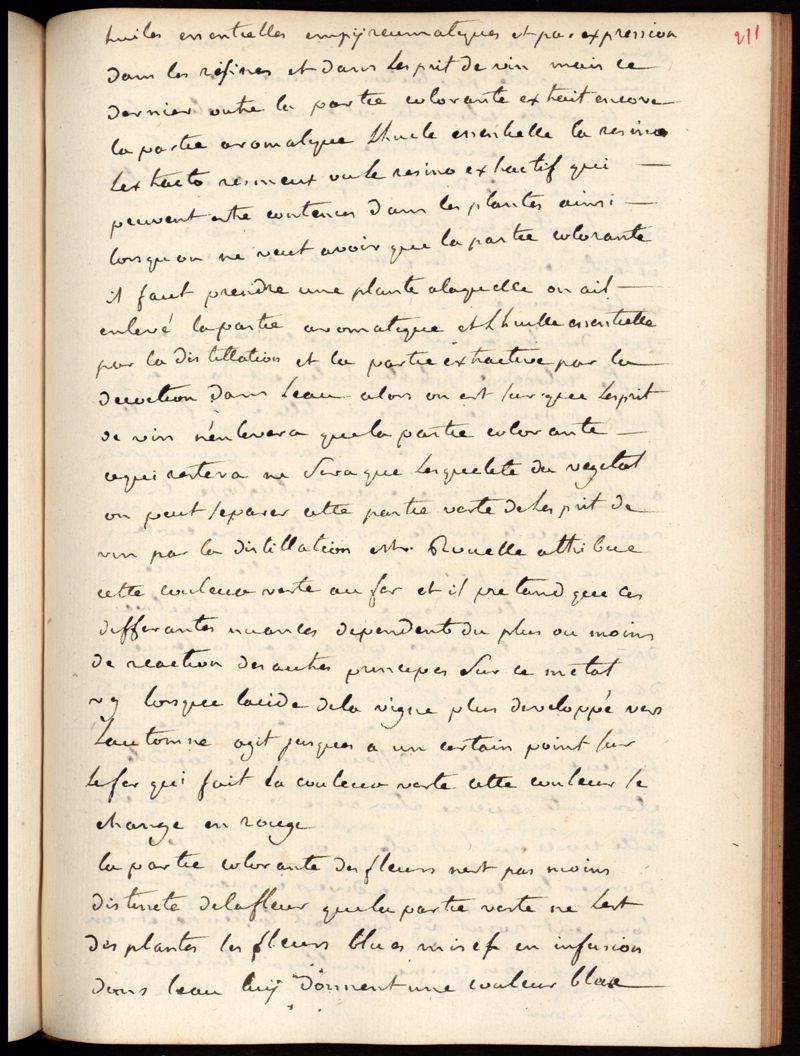 211
huiles essentielles empyreumatiques et par expression
dans les résines et dans lesprit de vin mais ce
dernier outre la partie colorante extrait encore
la partie aromatique lhuile essentielle la resine
lextracto resineux ou le resino extractif qui —
peuvent etre contenues dans les plantes ainsi —
lorsquon ne veut avoir que la partie colorante
il faut prendre une plante alaquelle on ait —
enlevé la partie aromatique et lhuille essentielle
par la distillation et la partie extractive par la
decoction dans leau alors on est sur que lesprit
de vin n'enlevera que la partie colorante —
cequi restera ne sera que lesquelete du vegetal
on peut separer cette partie verte de lesprit de
vin par la distillation Rouelle attribue
cette couleur verte au fer et il pretend que ces
differantes nuances dependent du plus ou moins
de reaction des autres principes sur ce metal
lorsque lacide dela vigne plus developpé vers
Lautomne agit jusques a un certain point sur
le fer qui fait la couleur verte cette couleur se
change en rouge
la partie colorante des fleurs nest pas moins
distincte delafleur que la partie verte ne lest
des plantes les fleurs blues mises en infusion
dans leau luy donnent une couleur blue —